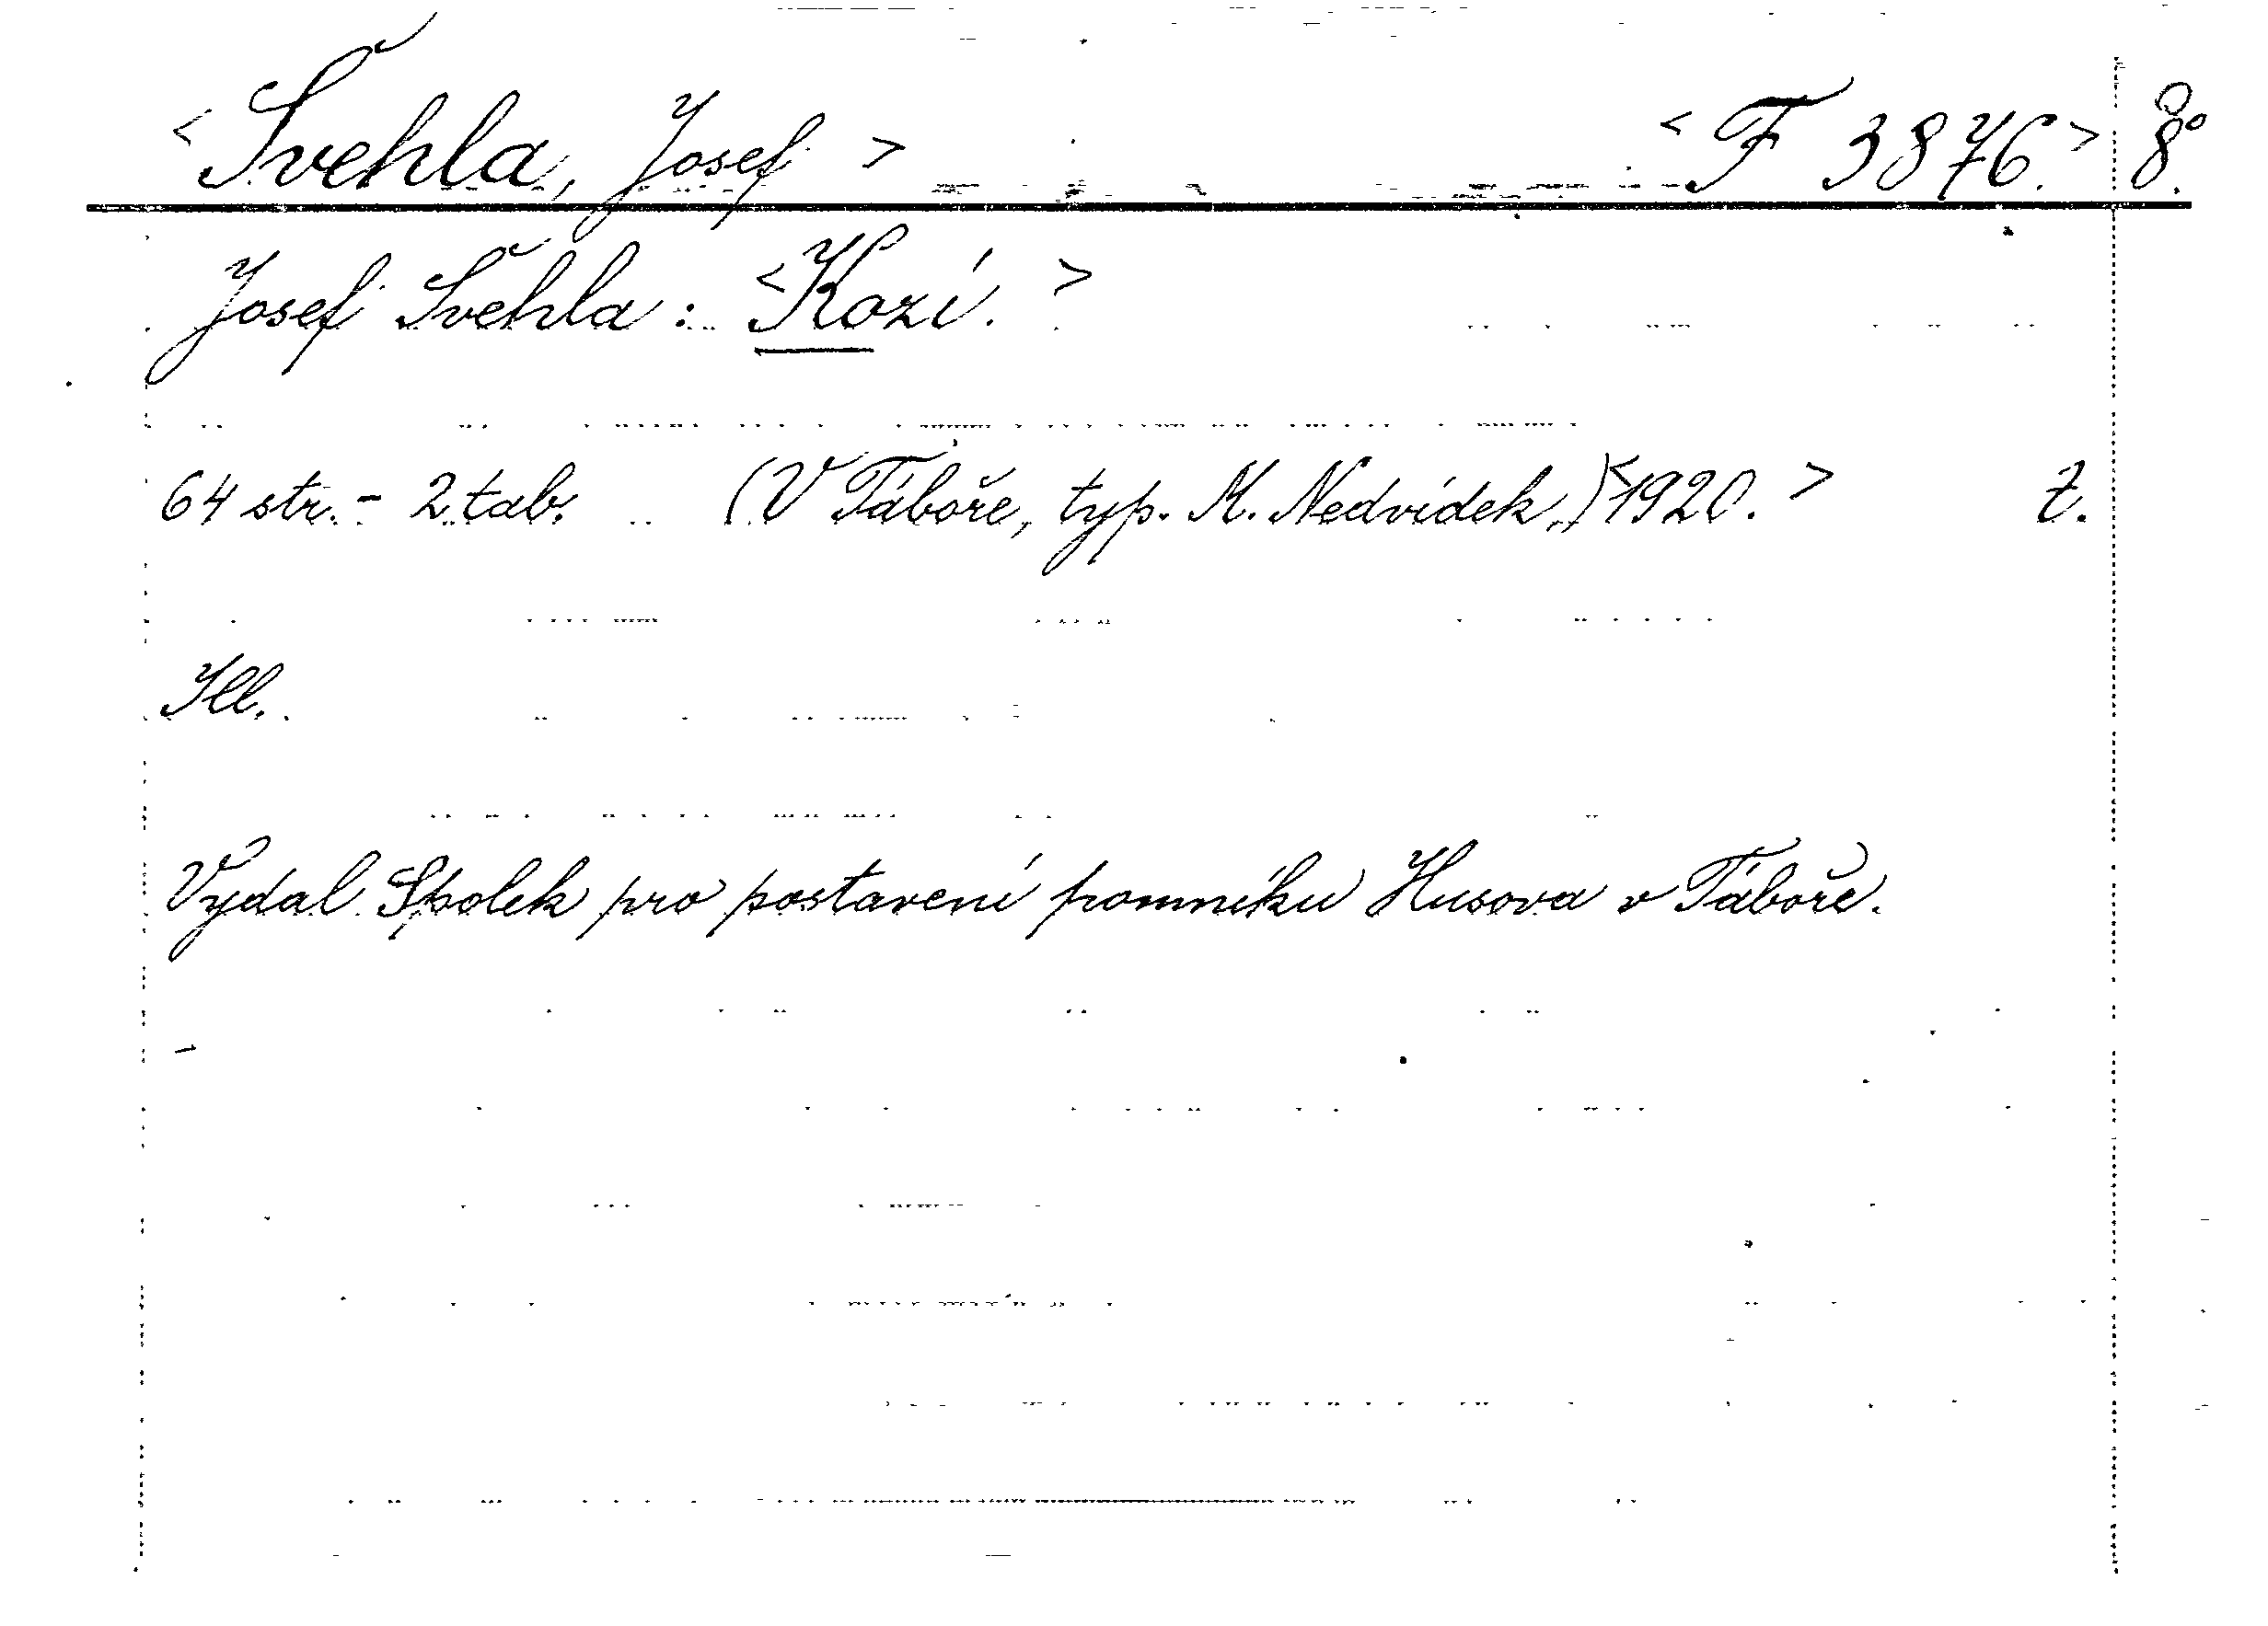 <Švehla, Josef> <F 3876.> 8°.
Josef Švehla: <Kozí.>
64 str. - 2 tab. (V Táboře, typ. M. Nedvídek,) <1920.> t.
Ill.
Vydal Spolek pro postavení pomníku Husova v Táboře.